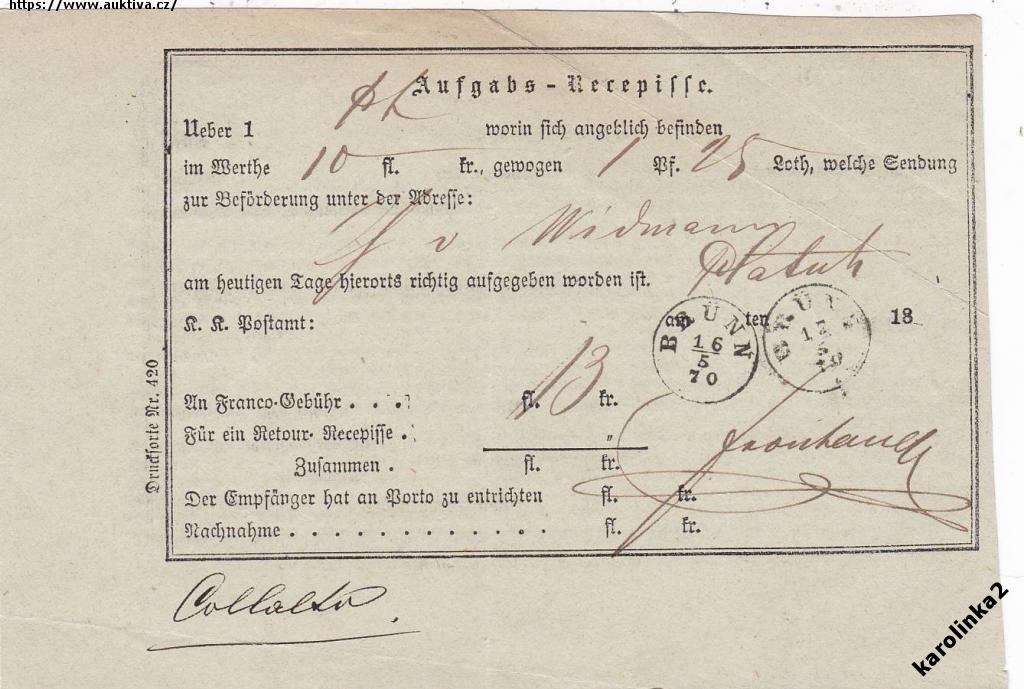 https://www.auktiva.cz/
Aufgabs-Recepisse.
Ueber 1 worin sich angeblich befinden
im Werthe 10 fl. kr., gewogen 1 Pf. 25 Loth, welche Sendung
zur Beförderung unter der Adresse:
v Widmann
am heutigen Tage hierorts richtig aufgegeben worden ist.
K. K. Postamt: am ten 18
BRÜNN
16
5
70
BRÜNN
An Franco-Gebühr . . . fl. 13 kr.
Für ein Retour-Recepisse . "
Zusammen . fl. kr.
Der Empfänger hat an Porto zu entrichten fl. kr.
Nachnahme . . . . . . . . . . . . fl. kr.
Drucksorte Nr. 420
Collalto.
karolinka2